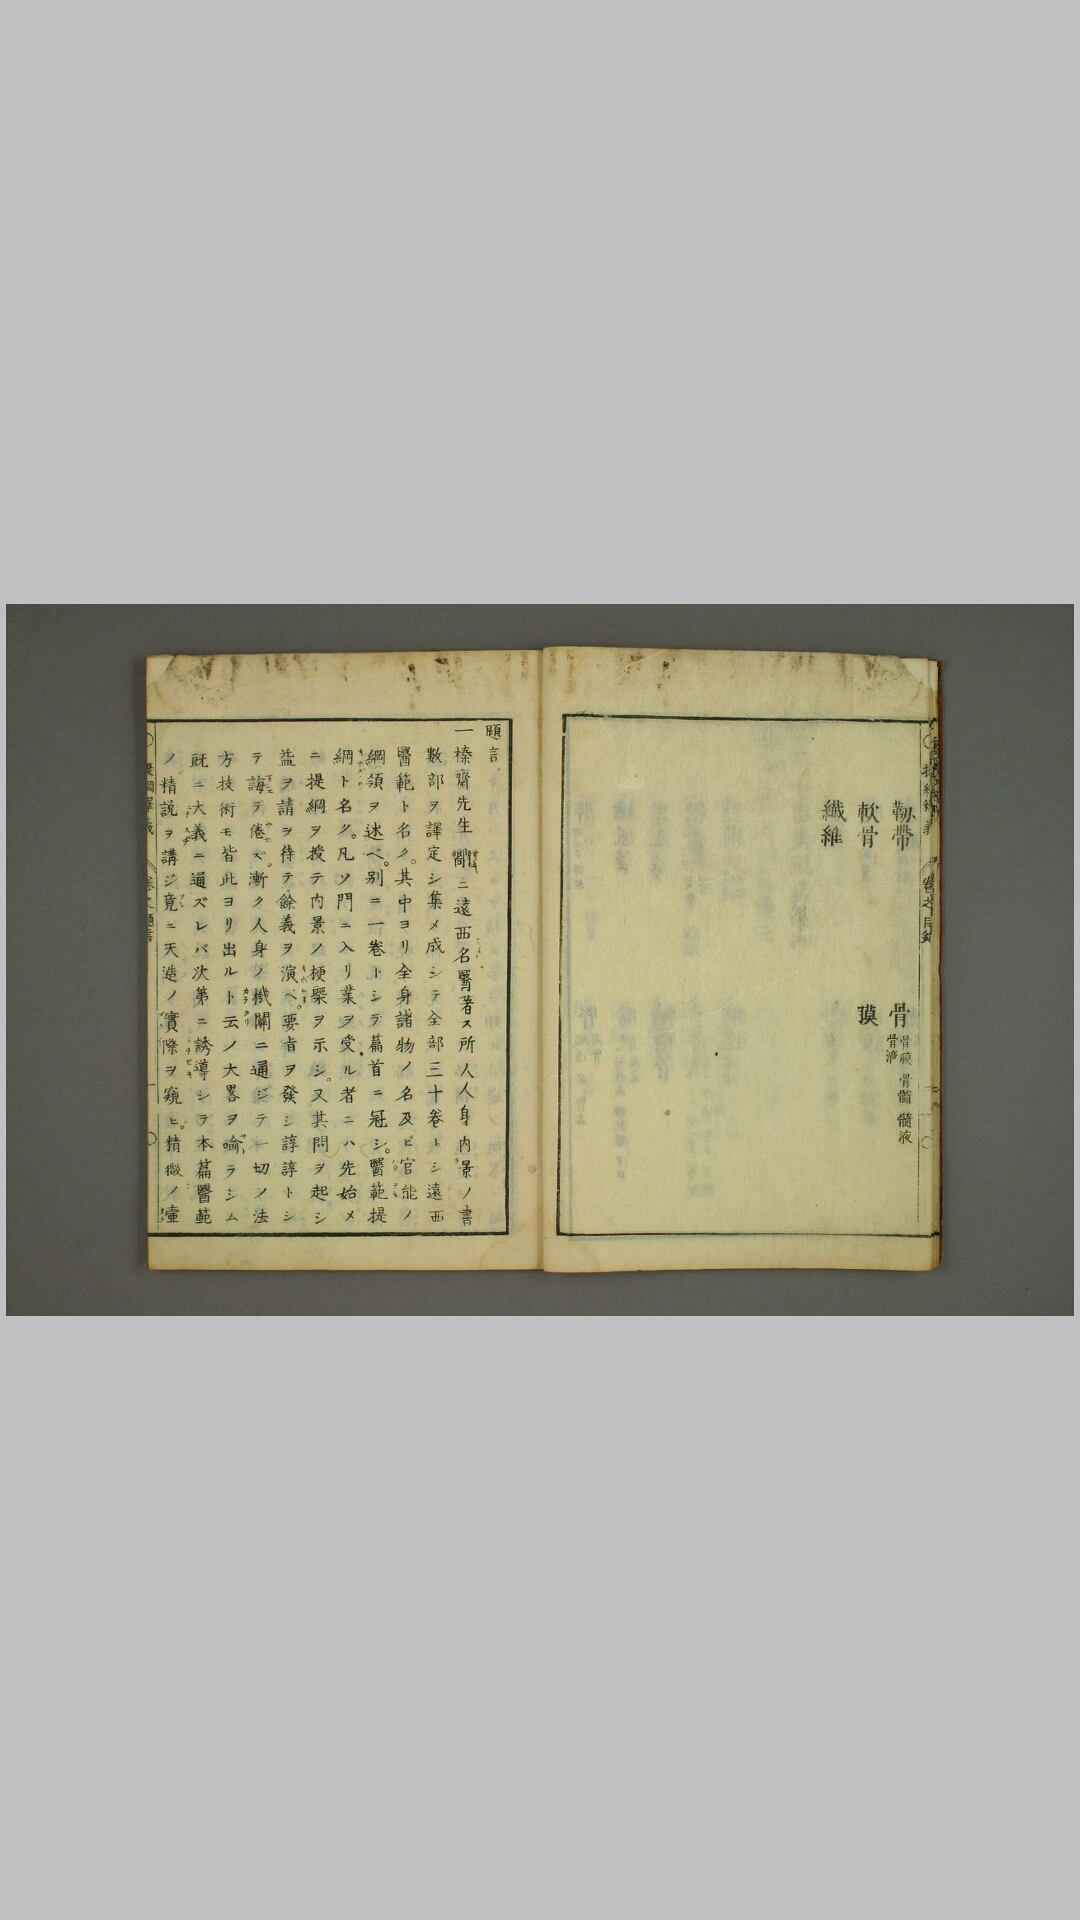 靱帶
骨
骨膜
骨髓
髓液
骨液
軟骨
膜
纖維
題言
一榛齋先生嚮ニ遠西名醫著ス所ノ人身内景ノ書
數部ヲ譯定シ集メ成シテ全部三十卷トシ遠西
醫範ト名ク。其中ヨリ全身諸物ノ名及ビ官能ノ
綱領ヲ述ベ。別ニ一卷トシテ篇首ニ冠シ。醫範提
綱ト名ク。凡ソ門ニ入リ業ヲ受ル者ニハ先始メ
ニ提綱ヲ授テ内景ノ梗槩ヲ示シ。又其問ヲ起シ
益ヲ請ヲ待テ餘義ヲ演ベ。要旨ヲ發シ諄諄トシ
テ誨ヲ倦ズ。漸ク人身ノ機關ニ通ジテ一切ノ法
方技術モ皆此ヨリ出ルト云ノ大畧ヲ喻ラシム
既ニ大義ニ通ズレバ次第ニ誘導シテ本篇醫範
ノ精説ヲ講ジ竟ニ天造ノ實際ヲ窺ヒ。精微ノ壷